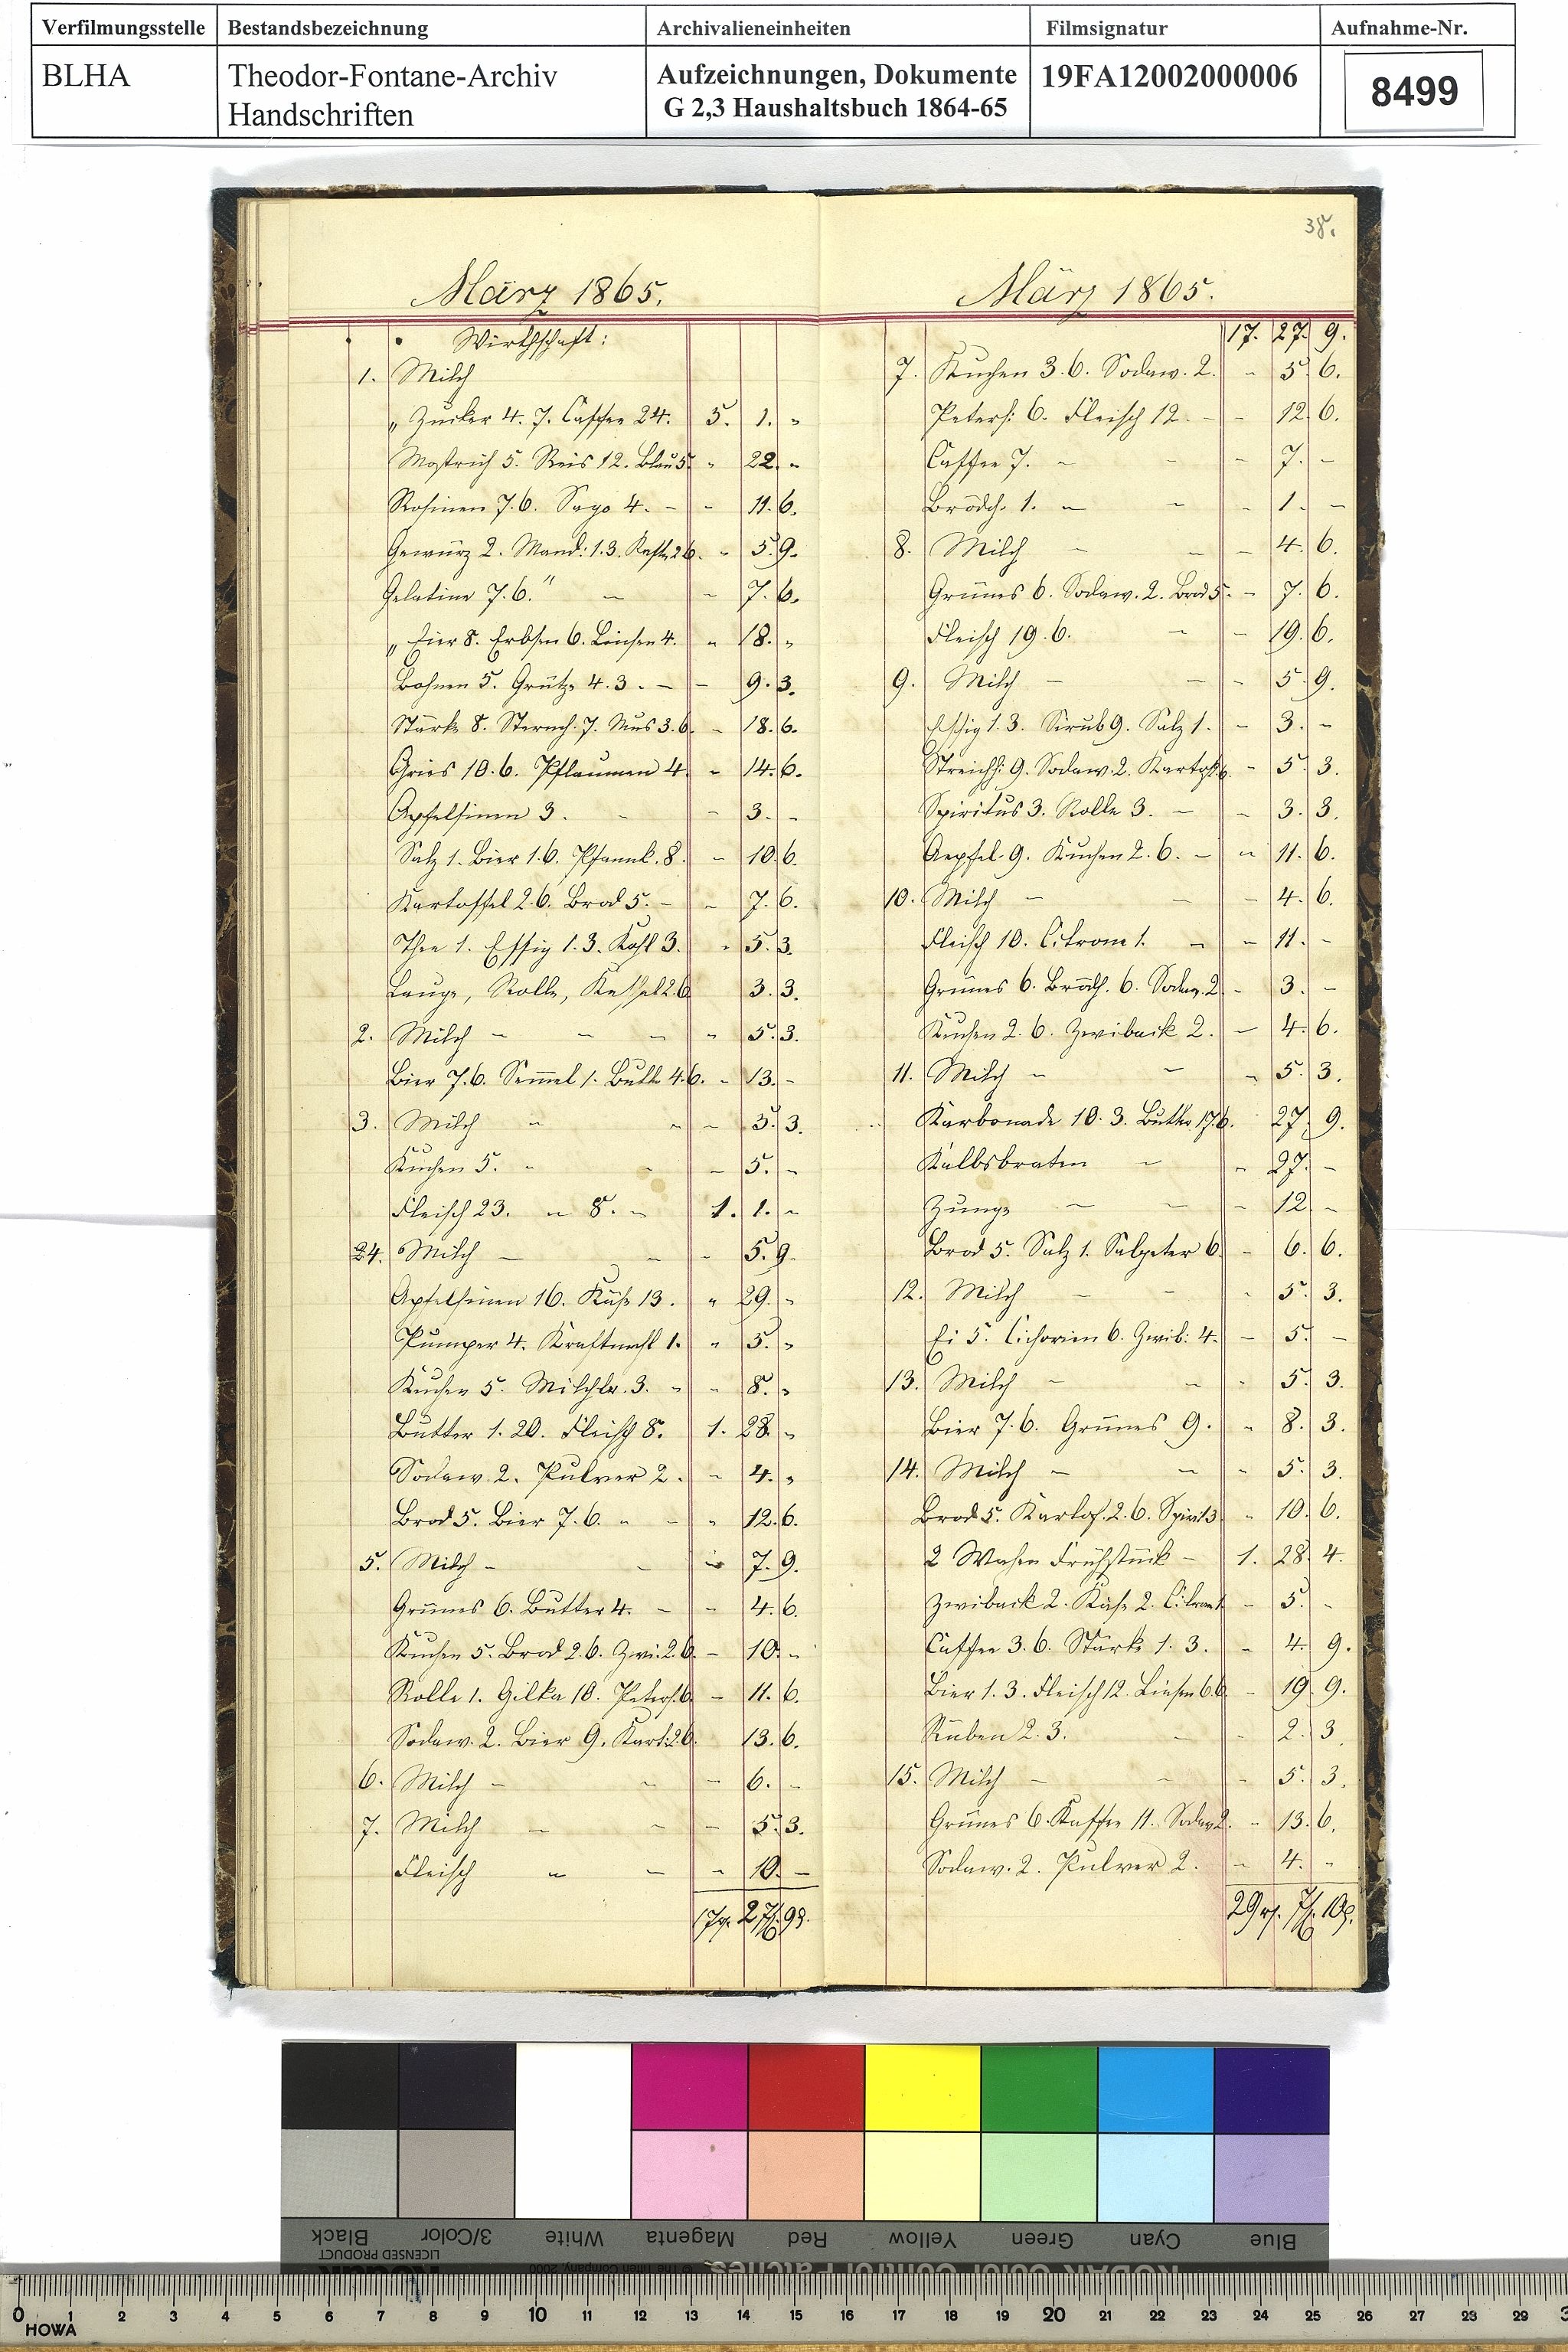 Verfilmungsstelle Bestandsbezeichnung Archivalieneinheiten Filmsignatur Aufnahme-Nr.
BLHA Theodor-Fontane-Archiv Handschriften Aufzeichnungen, Dokumente G 2,3 Haushaltsbuch 1864-65 19FA12002000006 8499
März 1865.
Wirthschaft:
1. Milch
„ Zucker 4. 7. Caffee 24. 5. 1. -
Mostrich 5. Reis 12. Blau 5. - 22. -
Rosinen 7.6. Sago 4. - - 11. 6.
Gewürz 2. Mand: 1.3. 2.6. - 5. 9.
Gelatine 7.6." - - 7. 6.
„ Eier 8. Erbsen 6. Linsen 4. - 18. -
Bohnen 5. Grütze 4.3. - - 9. 3.
Stärke 8. Sternch. 7. Mus 3.6. - 18. 6.
Gries 10.6. Pflaumen 4. - 14. 6.
Apfelsinen 3. - - 3. -
Salz 1. Bier 1.6. Pfannk. 8. - 10. 6.
Kartoffel 2.6. Brod 5. - - 7. 6.
Thee 1. Essig 1.3. Kohl 3. - 5. 3.
Lauge, Rolle, Kessel 2.6. 3. 3.
2. Milch - - - - 5. 3.
Bier 7.6. Semmel 1. Butt. 4.6. - 13. -
3. Milch - - - 5. 3.
Kuchen 5. - - - 5. -
Fleisch 23. - 8. - 1. 1. -
4. Milch - - - 5. 9.
Apfelsinen 16. Käse 13. - 29. -
Pumper 4. Kraftmehl 1. - 5. -
Kuchen 5. Milchbr. 3. - - 8. -
Butter 1. 20. Fleisch 8. 1. 28. -
Sodaw. 2. Pulver 2. - 4. -
Brod 5. Bier 7.6. - - - 12. 6.
5. Milch - - - 7. 9.
Grünes 6. Butter 4. - - 4. 6.
Kuchen 5. Brod 2.6. Zwi: 2.6. - 10. -
Rolle 1. Gilka 10. Peters. 6. - 11. 6.
Sodaw. 2. Bier 9. Kart: 2.6. 13. 6.
6. Milch - - - 6. -
7. Milch - - - 5. 3.
Fleisch - - - 10. -
17 27 9
38.
März 1865.
17. 27. 9.
7. Kuchen 3.6. Sodaw. 2. - 5. 6.
Peters: 6. Fleisch 12. - - 12. 6.
Caffee 7. - - - 7. -
Brödch. 1. - - - 1. -
8. Milch - - - 4. 6.
Grünes 6. Sodaw. 2. Brod 5. - 7. 6.
Fleisch 19.6. - - 19. 6.
9. Milch - - - 5. 9.
Essig 1.3. Sirub 9. Salz 1. - 3. -
Streichh: 9. Sodaw. 2. Kartof. 2.6. - 5. 3.
Spiritus 3. Rolle 3. - - 3. 3.
Aepfel 9. Kuchen 2.6. - - 11. 6.
10. Milch - - - 4. 6.
Fleisch 10. Citrone 1. - - 11. -
Grünes 6. Brödch. 6. Sodaw. 2. - 3. -
Kuchen 2.6. Zwiback 2. - 4. 6.
11. Milch - - - 5. 3.
Karbonade 10.3. Butter 17.6. 27. 9.
Kalbsbraten - - 27. -
Zunge - - - 12. -
Brod 5. Salz 1. Salpeter 6. - 6. 6.
12. Milch - - - 5. 3.
Ei 5. Cichorien 6. Zwib: 4. - 5. -
13. Milch - - - 5. 3.
Bier 7.6. Grünes 9. - 8. 3.
14. Milch - - - 5. 3.
Brod 5. Kartof. 2.6. Spirit 3. - 10. 6.
2 Wochen Frühstück - 1. 28. 4.
Zwiback 2. Käse 2. Citrone 1. - 5. -
Caffee 3.6. Stärke 1.3. - 4. 9.
Bier 1.3. Fleisch 12. Linsen 6.6. - 19. 9.
Rüben 2.3. - - 2. 3.
15. Milch - - - 5. 3.
Grünes 6. Kaffee 11. Sodaw. 2. - 13. 6.
Sodaw. 2. Pulver 2. - 4. -
29 7 10
Black 3/Color White Magenta Red Yellow Green Cyan Blue
LICENSED PRODUCT
Kodak © The Tiffen Company, 2000 KODAK Color Control Patches
0 1 2 3 4 5 6 7 8 9 10 11 12 13 14 15 16 17 18 19 20 21 22 23 24 25 26 27 28 29
HOWA